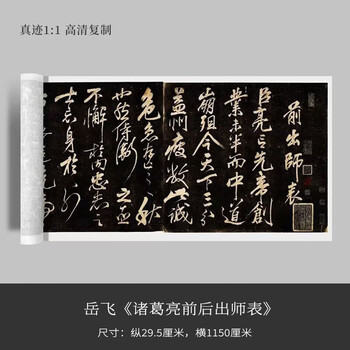 真迹1:1 高清复制
前出師表
臣亮言先帝創
業未半而中道
崩殂今天下三分
益州疲敝此誠
危急存亡之秋
也然侍衛之臣
不懈於內忠志之
士忘身於外
岳飞《诸葛亮前后出师表》
尺寸：纵29.5厘米，横1150厘米